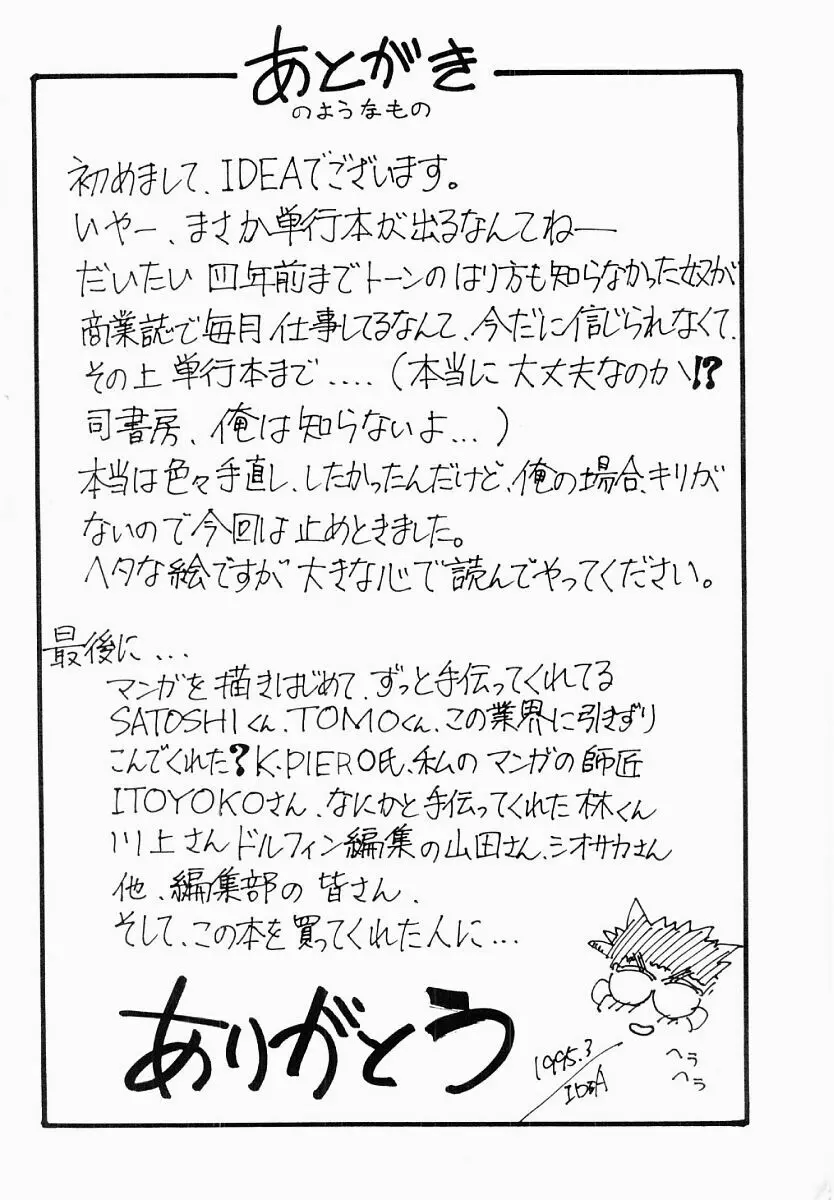 あとがき
のようなもの
初めまして、IDEAでございます。
いやー、まさか単行本が出るなんてねー
だいたい 四年前までトーンのはり方も知らなかった奴が
商業誌で毎月仕事してるなんて、今だに信じられなくて、
その上 単行本まで....(本当に大丈夫なのか!?
司書房、俺は知らないよ...)
本当は色々手直し、したかったんだけど、俺の場合、キリが
ないので今回は止めときました。
ヘタな絵ですが 大きな心で読んでやってください。
最後に...
マンガを描きはじめて、ずっと手伝ってくれてる
SATOSHIくん、TOMOくん、この業界に引きずり
こんでくれた?K・PIERO氏、私のマンガの師匠
ITOYOKOさん、なにかと手伝ってくれた 林くん
川上さん ドルフィン編集の山田さん、シオサカさん
他、編集部の皆さん、
そして、この本を買ってくれた人に...
ありがとう
1995.3
IDEA
ヘラ
ヘラ